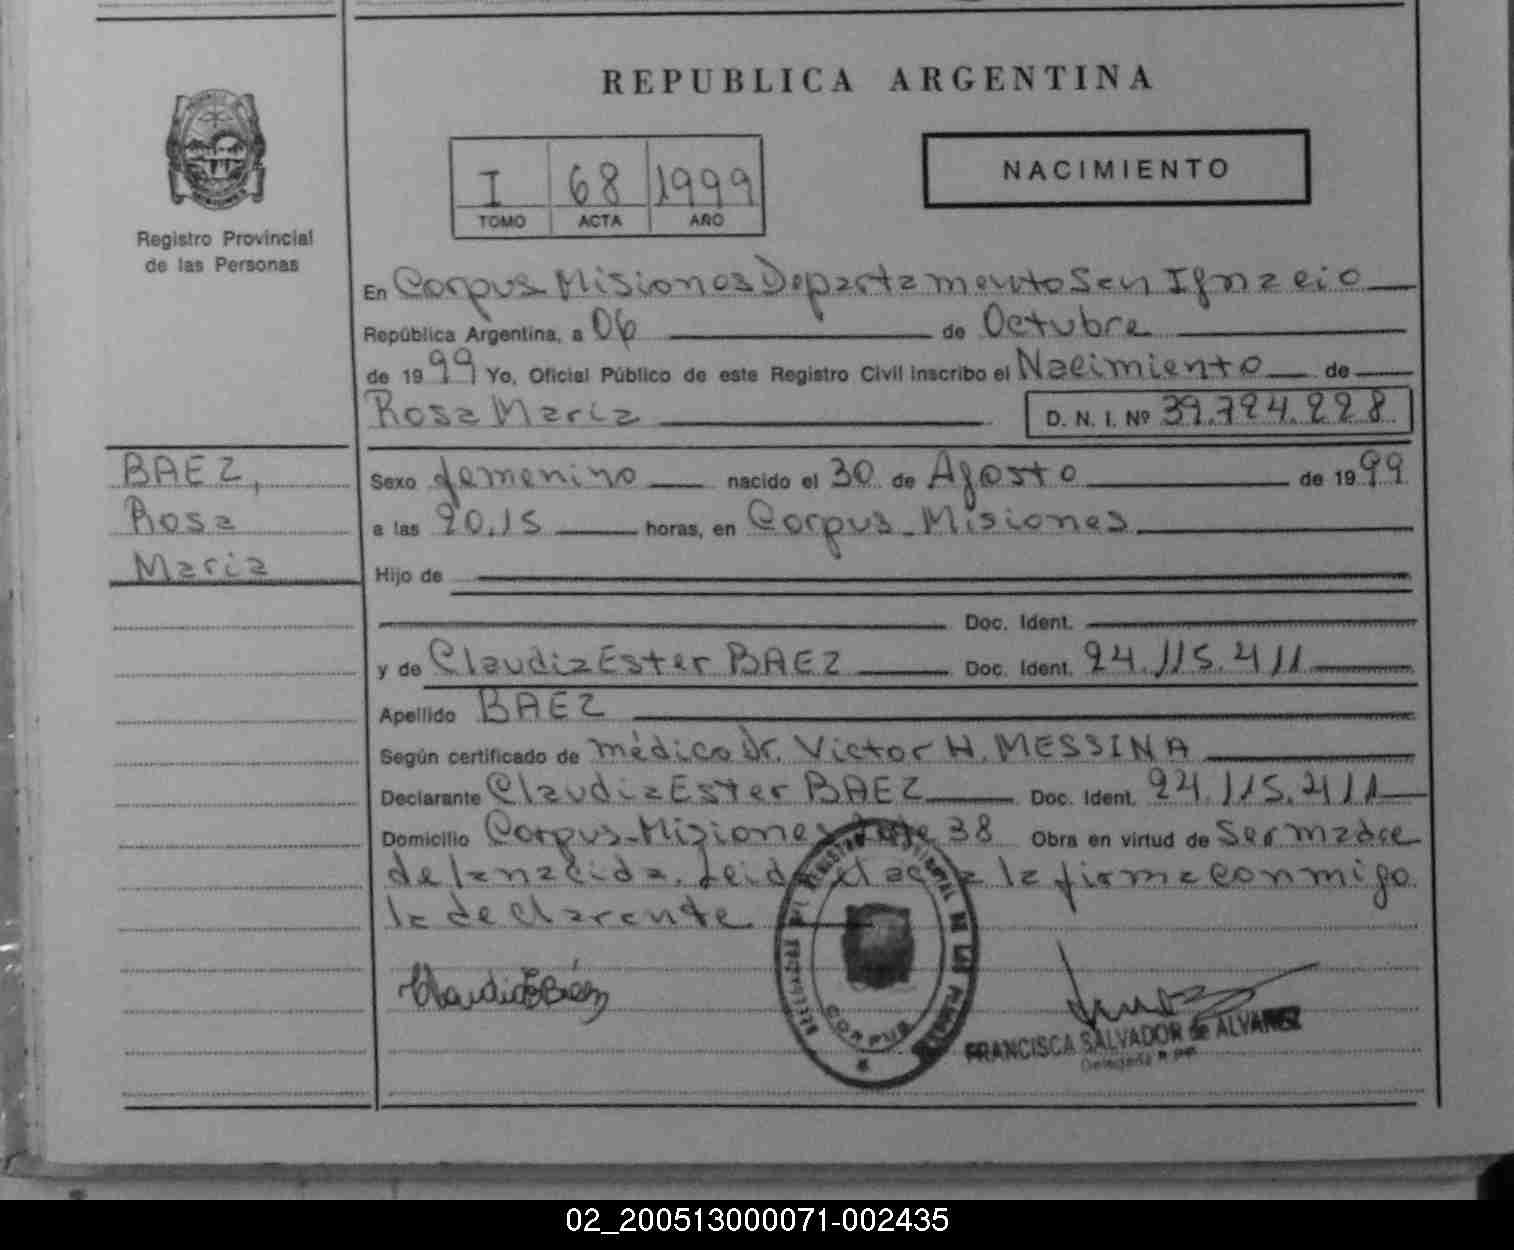 REPUBLICA ARGENTINA
I 68 1999
TOMO ACTA AÑO
NACIMIENTO
Registro Provincial
de las Personas
En Corpus Misiones Departamento San Ignacio
República Argentina, a 06 de Octubre
de 1999 Yo, Oficial Público de este Registro Civil inscribo el Nacimiento de
Rosa Maria D. N. I. Nº 39.724.228
BAEZ,
Rosa
Maria
Sexo femenino nacido el 30 de Agosto de 1999
a las 20,15 horas, en Corpus - Misiones
Hijo de
Doc. Ident.
y de Claudia Ester BAEZ Doc. Ident. 24.115.411
Apellido BAEZ
Según certificado de médico Dr. Victor H. MESSINA
Declarante Claudia Ester BAEZ Doc. Ident. 24.115.411
Domicilio Corpus - Misiones Lote 38 Obra en virtud de Ser madre
de la nacida. Leida el acta la firma conmigo
la declarante
Claudia E Báez
CORPUS
FRANCISCA SALVADOR de ALVAREZ
02_200513000071-002435